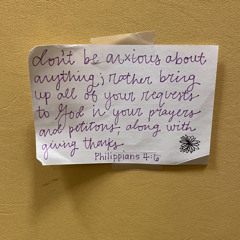 don't be anxious about
anything; rather bring
up all of your requests
to God in your prayers
and petitions, along with
giving thanks.
Philippians 4:6